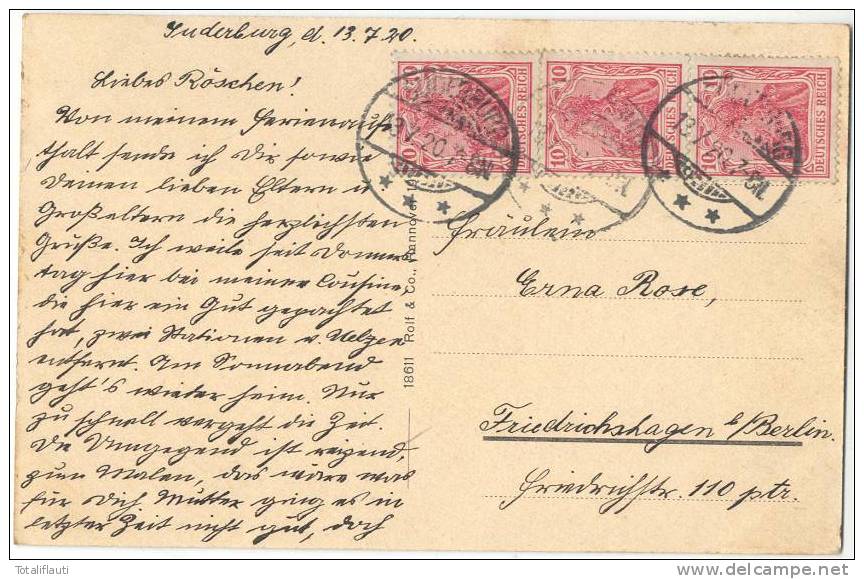 Suderburg, d. 13.7.20.
Liebes Röschen!
Von meinem Ferienauf=
thalt sende ich Dir sowie
Deinen lieben Eltern u
Großeltern die herzlichsten
Grüße. Ich weile seit Donners
tag hier bei meiner Cousine,
die hier ein Gut gepachtet
hat, zwei Stationen v. Uelzen
entfernt. Am Sonnabend
geht's wieder heim. Nur
zu schnell vergeht die Zeit.
Die Umgegend ist reizend,
zum Malen, das wäre was
für Dich. Mutter ging es in
letzter Zeit nicht gut, doch
18611 Rolf & Co., Hannover
10 10 DEUTSCHES REICH
10 DEUTSCHES REICH
10 10 DEUTSCHES REICH
SUDERBURG
13.7.20.7-8N.
Fräulein
Erna Rose,
Friedrichshagen b/Berlin.
Friedrichstr. 110 ptr.
Totaliflauti
delcampe.net